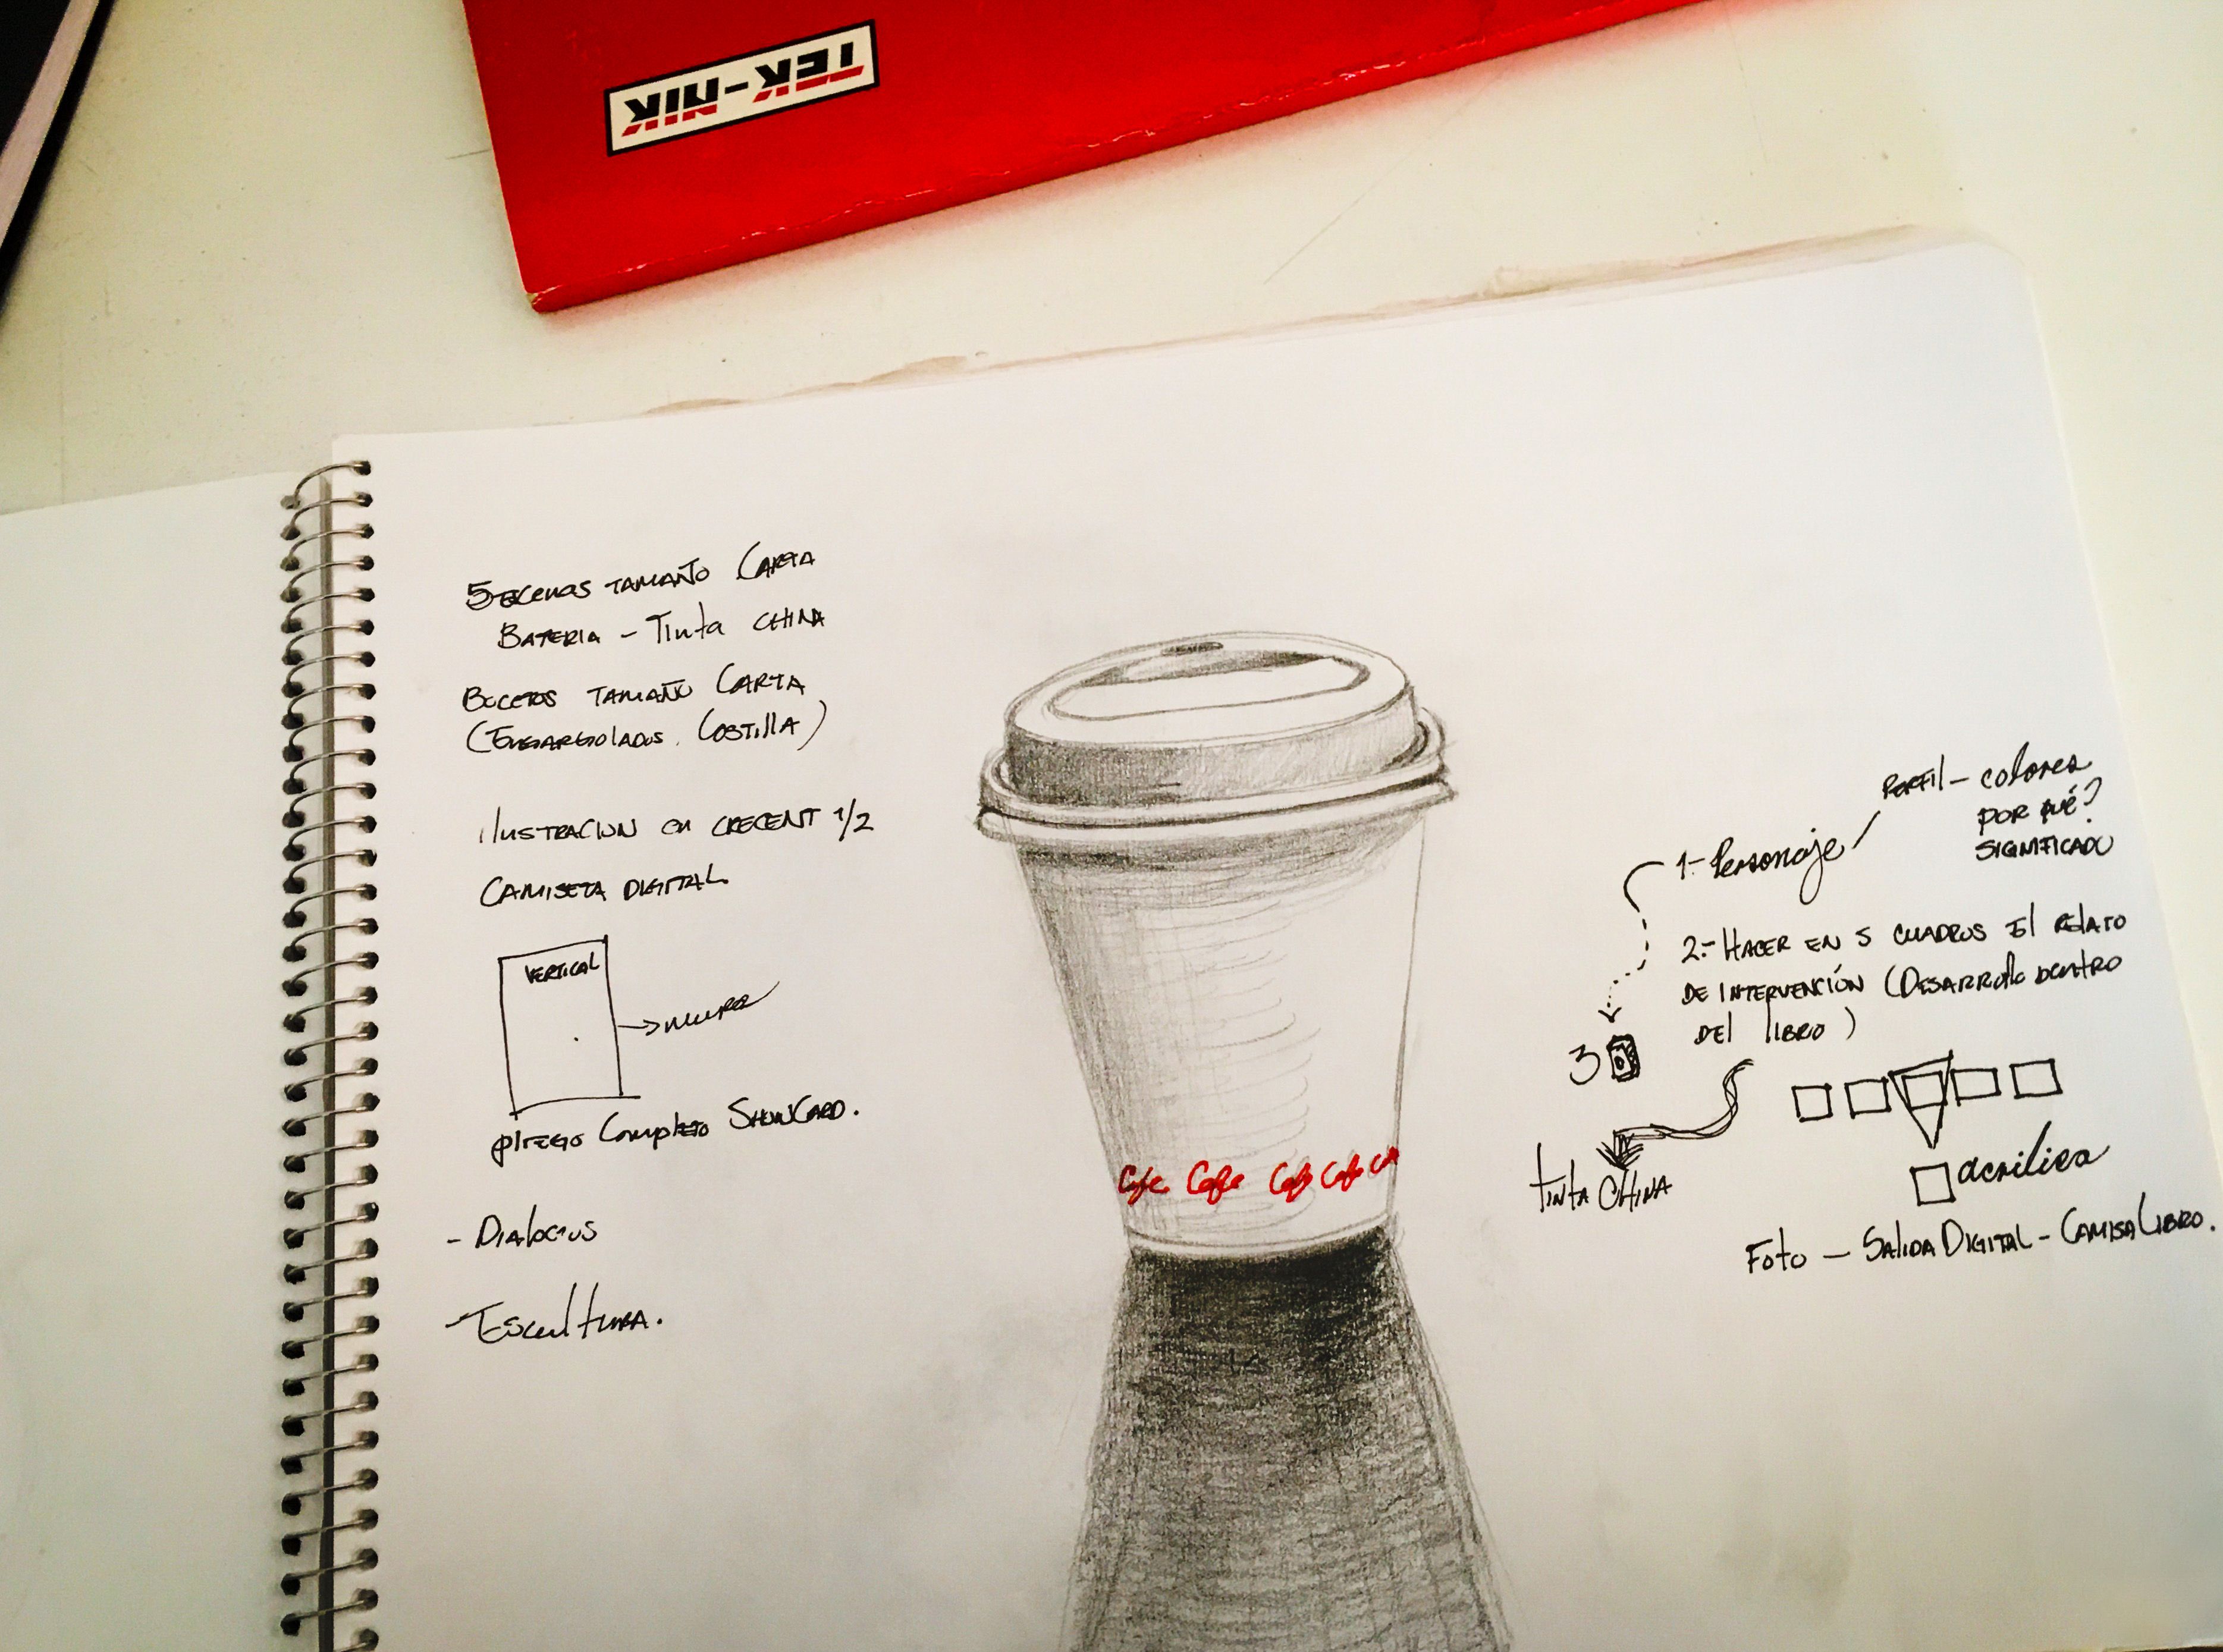 TEK-NIK
5 Escenas TAMAÑO CARTA
BATERIA - Tinta CHINA
BOCETOS TAMAÑO CARTA
(ENGARGOLADOS. COSTILLA)
ILUSTRACION en CRECENT 1/2
CAMISETA DIGITAL
VERTICAL
pliego Completo ShowCard.
- DIALOGOS
- Escultura.
Cafe Cafe Cafe Cafe Ca
PERFIL - colores
POR QUÉ?
SIGNIFICADO
1.- Personaje
2.- HACER EN 5 CUADROS El RELATO
DE INTERVENCIÓN (DESARROllo dentro
DEl lIBRO)
3
TINTA CHINA
acrilico
Foto - SAlIDA DIGITAL - CAMISA LIBRO.